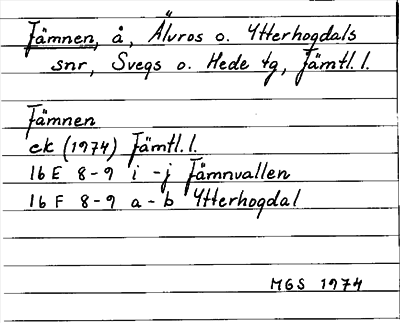 Fämnen, å, Älvros o. Ytterhogdals
snr, Svegs o. Hede tg, Jämtl. l.
Fämnen
ek (1974) Jämtl. l.
16 E 8-9 i -j Fämnvallen
16 F 8-9 a - b Ytterhogdal
MGS 1974